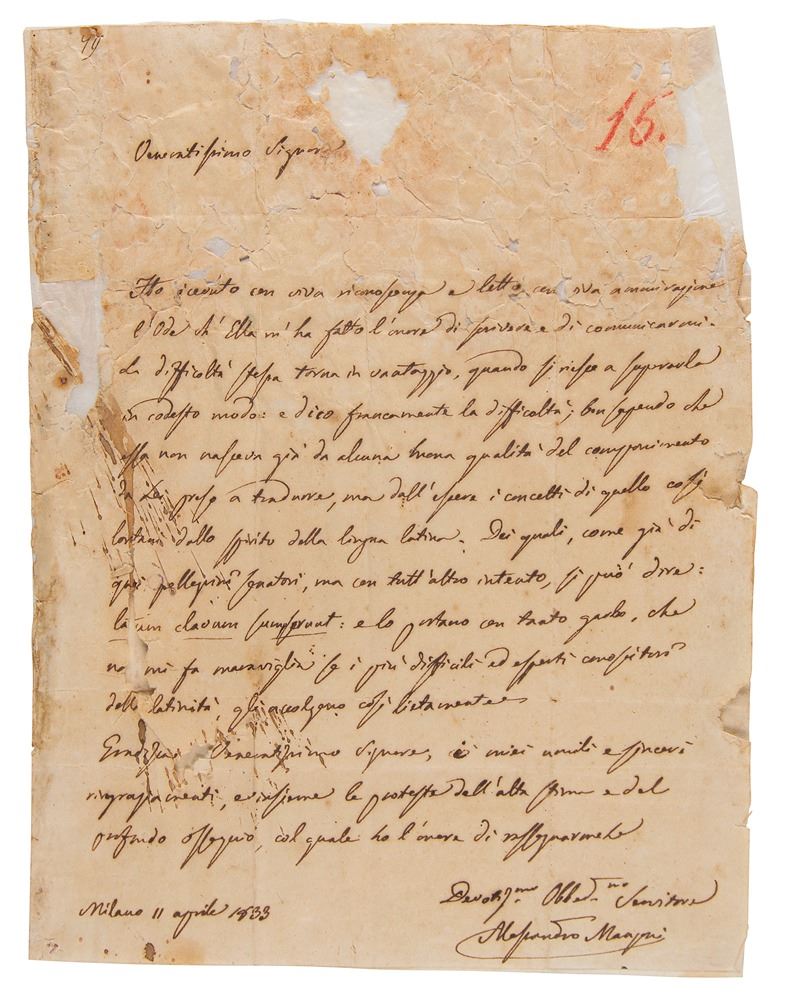 15.
Veneratissimo Signore
Ho ricevuto con viva riconoscenza e letto con viva ammirazione
l'Ode ch'Ella m'ha fatto l'onore di scrivere e di comunicarmi.
La difficoltà stessa torna in vantaggio, quando si riesce a superarla
in codesto modo: e dico francamente la difficoltà; ben sapendo che
essa non nasceva già da alcuna buona qualità del componimento
da Lei preso a tradurre, ma dall'essere i concetti di quello così
lontani dallo spirito della lingua latina. Dei quali, come già di
quei pellegrini senatori, ma con tutt'altro intento, si può dire:
latum clavum sumpserunt: e lo portano con tanto garbo, che
non mi fa maraviglia se i più difficili ed esperti conoscitori
della latinità, gli accolgono così lietamente
Gradisca Veneratissimo Signore, i miei umili e sinceri
ringraziamenti, e insieme le proteste dell'alta stima e del
profondo ossequio, col quale ho l'onore di rassegnarmele
Devotiss.mo Obbed.mo Servitore
Milano 11 aprile 1833
Alessandro Manzoni